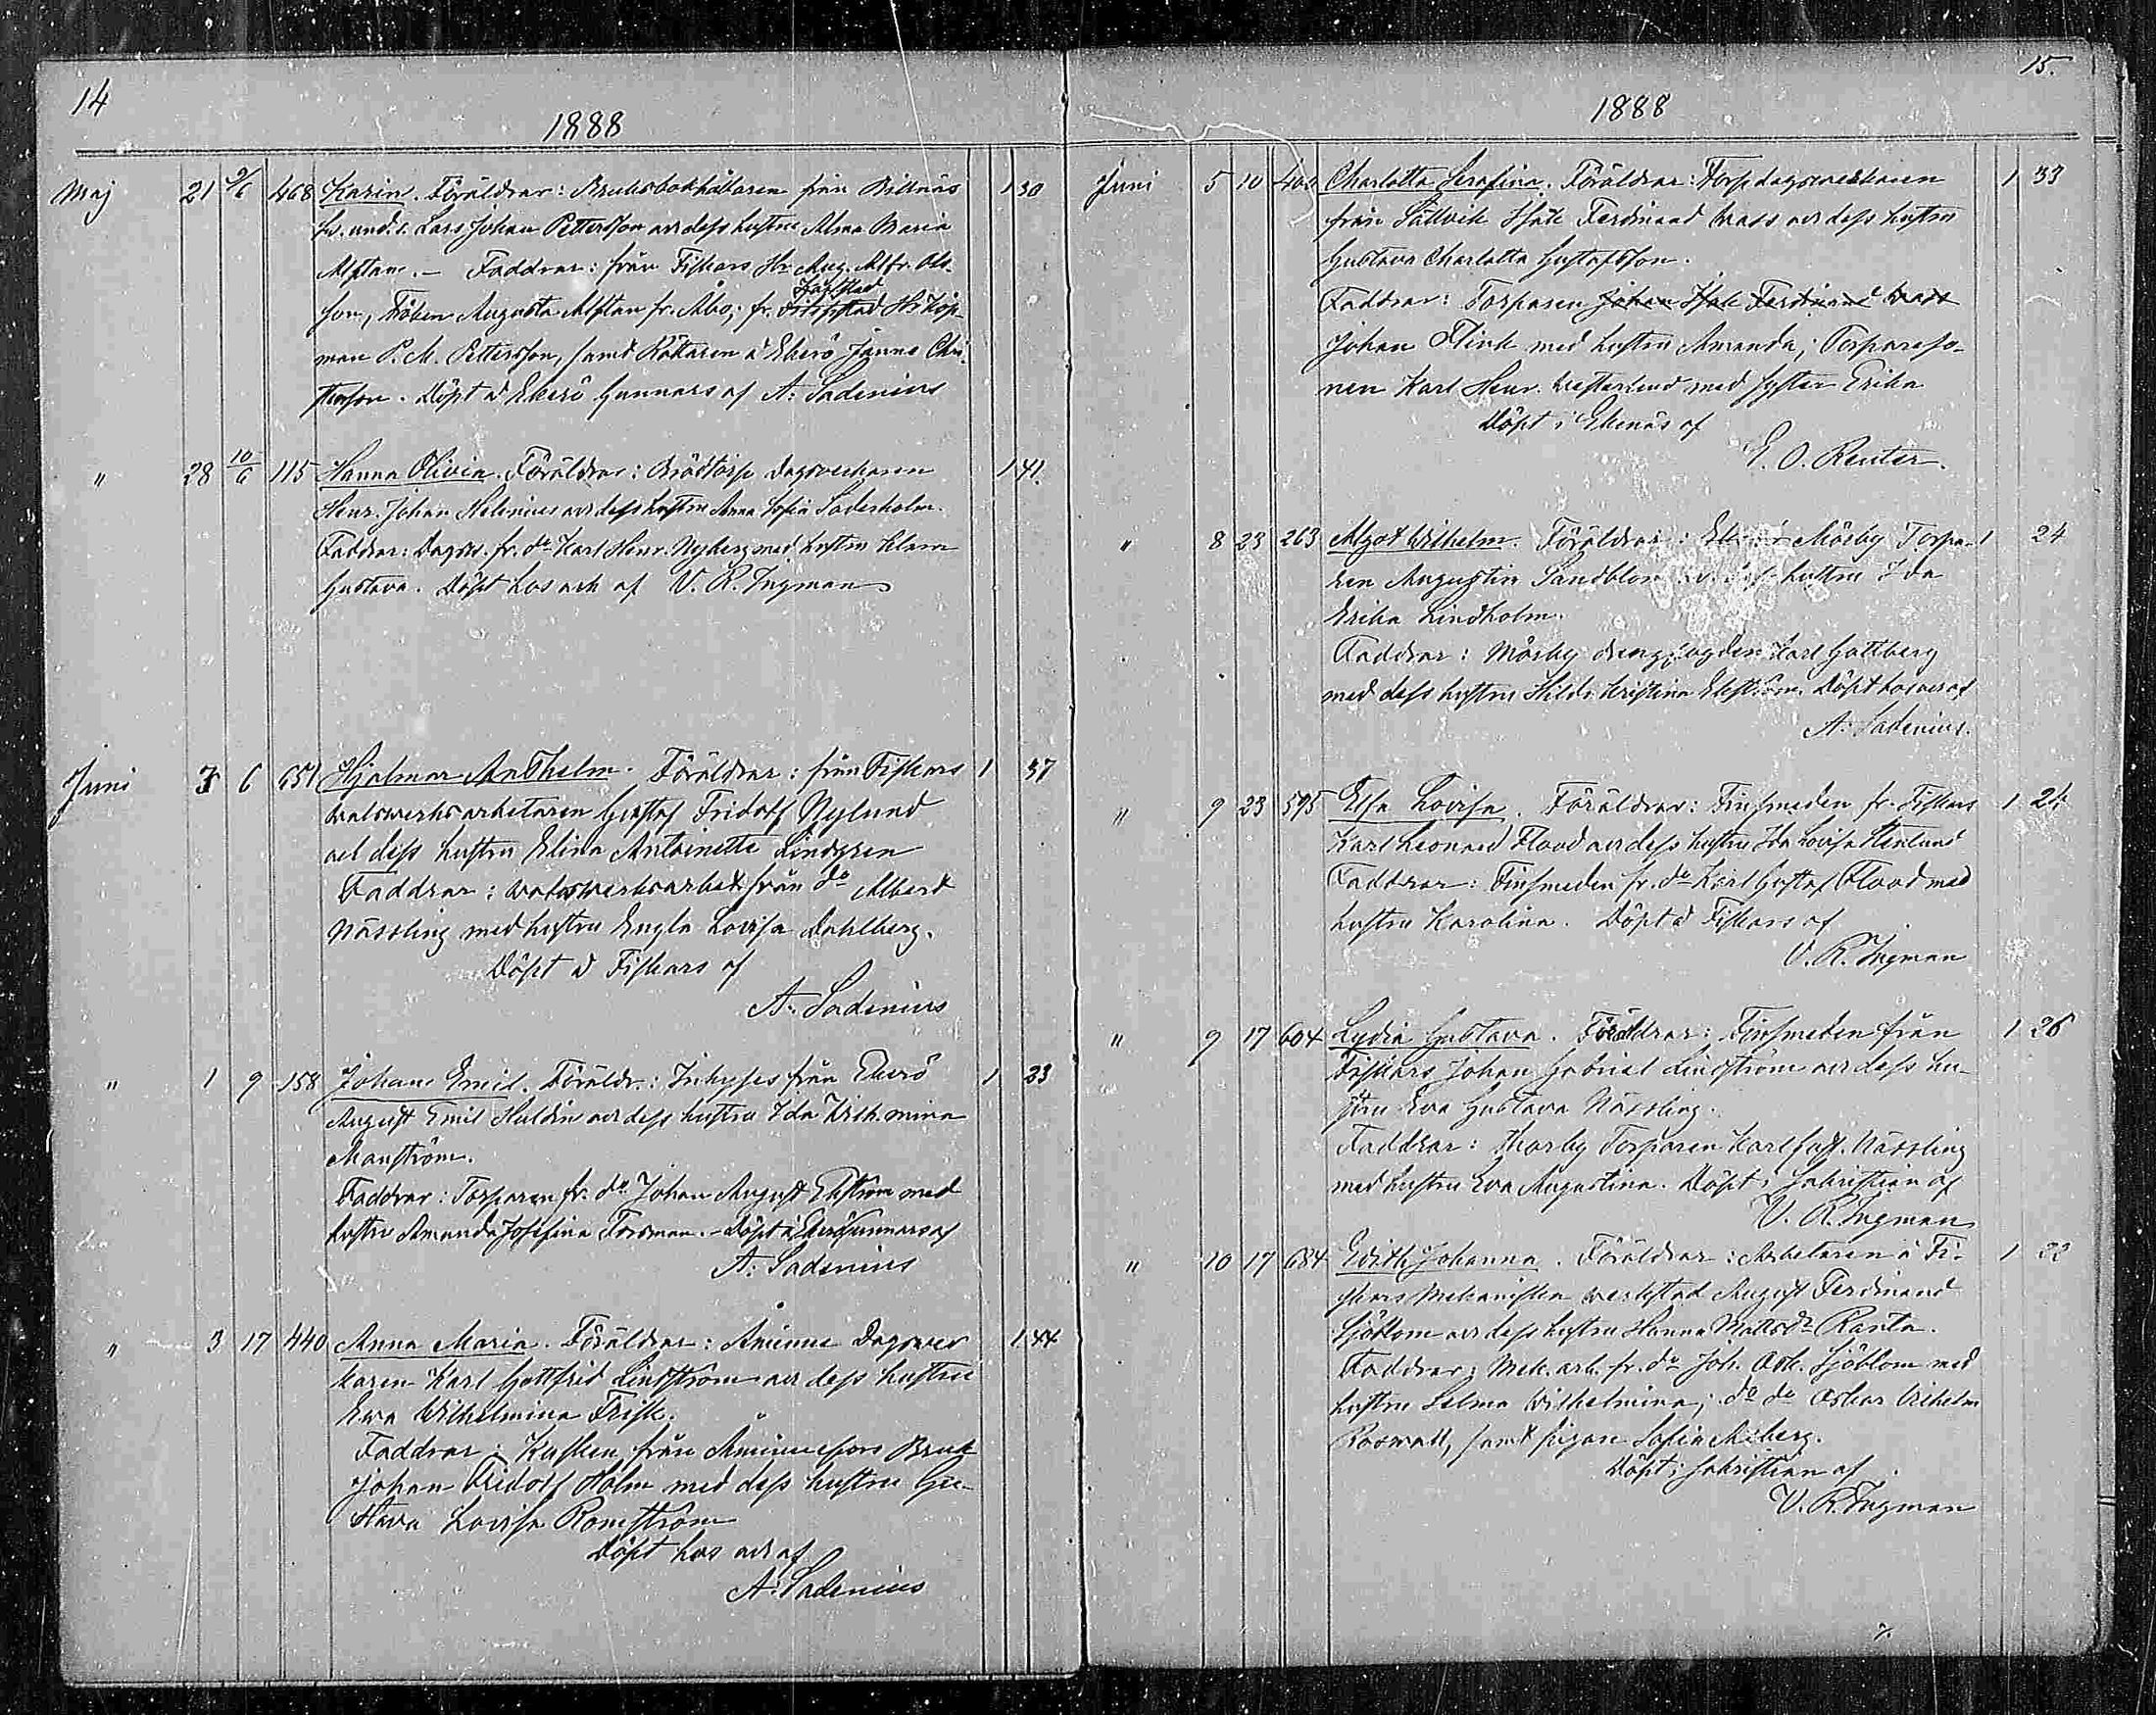 14
1888
Maj 21 9/6 468 Karin. Föräldrar: Bruksbokhållaren från Billnäs 1 30
Lars Johan Pettersson och dess hustru Alma Maria
Alftan. – Faddrar: från Fiskars Hr Aug. Alfr. Ols-
son, Fröken Augusta Alftan fr. Åbo; fr. Karlstad Hr Köp-
man P. M. Pettersson, samt Rättaren å Ekerö Janne Chri-
stenson. Döpt å Ekerö Gunnars af A. Sadenius
" 28 10/6 115 Hanna Olivia. Föräldrar: Brödtorp Dagsverkaren 1 41.
Henr. Johan Helenius och dess hustru Anna Sofia Söderholm.
Faddrar: Dagsv. fr. do Karl Henr. Nyberg med hustru Klara
Gustava. Döpt hos och af V. R. Ingman
Juni 3 6 651 Hjalmar Anshelm. Föräldrar: från Fiskars 1 37
valsverksarbetaren Gustaf Fridolf Nylund
och dess hustru Elina Antoinette Lindgren
Faddrar: valsverksarbet. från do Albert
Nässling med hustru Engla Lovisa Dahlberg.
Döpt å Fiskars af
A. Sadenius
" 1 9 158 Johan Emil. Föräldr.: Inhyses från Ekerö 1 23
August Emil Huldin och dess hustru Ida Wilhelmina
Manström.
Faddrar: Torparen fr. do Johan August Ekström med
hustru Amanda Josefina Forsman. – Döpt å Ekerö Gunnars af
A. Sadenius
" 3 17 440 Anna Maria. Föräldrar: Åminne Dagsver- 1 44
karen Karl Gottfrid Lindström och dess hustru
Eva Wilhelmina Frisk.
Faddrar: Kusken från Åminnefors Bruk
Johan Fridolf Holm med dess hustru Gu-
stava Lovisa Romström
Döpt hos och af
A. Sadenius
15.
1888
Juni 5 10 Charlotta Serafina. Föräldrar: Torpdagsverkaren 1 33
från Sällvik Isak Ferdinand Wass och dess hustru
Gustava Charlotta Gustafsson.
Faddrar: Torparen Johan Isak Ferdinand Wass
Johan Flink med hustru Amanda; Torpareso-
nen Karl Henr. Westerlund med syster Erika
Döpt i Ekenäs af
E. O. Reuter.
" 8 23 263 Algot Wilhelm. Föräldrar: Mörby Torpa- 1 24
ren Augustin Sandblom hustru Ida
Erika Lindholm.
Faddrar: Mörby drengfogden Karl Gottberg
med dess hustru Hilda Kristina Ekström. Döpt hos och af
A. Sadenius.
" 9 23 595 Elsa Lovisa. Föräldrar: Finsmeden fr. Fiskars 1 24
Karl Leonard Flood och dess hustru Ida Lovisa Stenlund
Faddrar: Finsmeden fr. do Karl Gustaf Flood med
hustru Karolina. Döpt å Fiskars af
V. R. Ingman
" 9 17 604 Lydia Gustava. Föräldrar: Finsmeden från 1 26
Fiskars Johan Gabriel Lindström och dess hu-
stru Eva Gustava Nässling.
Faddrar: Torparen Karl Gust. Nässling
med hustru Eva Augustina. Döpt i Sakristian af
V. R. Ingman
" 10 17 684 Edith Johanna. Föräldrar: Arbetaren å Fi- 1 22
skars Mekaniska verkstad August Ferdinand
Sjöblom och dess hustru Hanna Mattsdr Ranta.
Faddrar: Mek. arb. fr. do Joh. Osk. Sjöblom med
hustru Selma Wilhelmina; do do Oskar Wilhelm
Roswall, samt pigan Sofia
Döpt i Sakristian af
V. R. Ingman